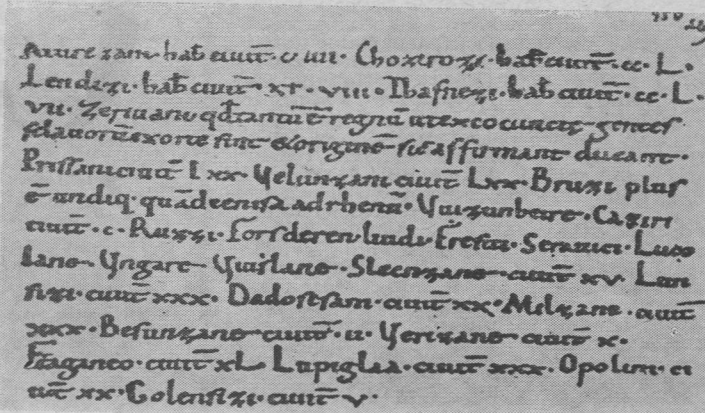 Atturezani hab̄ ciuit̄ · c iiii · Chozirozi · hab̄ ciuit̄ · cc · L ·
Lendizi · hab̄ ciuit̄ · xc · viii · Thafnezi · hab̄ ciuit̄ · cc · L ·
vii · Zeriuani qđ tantū ē regnū ut ex eo cunctę gentes
sclauorū exorte sint & originē sic affirmant ducant ·
Prissani ciuit̄ Lxx · Velunzani ciuit̄ Lxx · Bruzi plus
ē undiq · quā de enisa ad rhenū · Vuizunbeire · Caziri
ciuit̄ · c · Ruzzi · Forsderen liudi · Fresiti · Serauici · Luco
lane · Vngare · Vuislane · Sleenzane · ciuit̄ xv · Lun
sizi · ciuit̄ xxx · Dadosesani · ciuit̄ xx · Milzane · ciuit̄
xxx · Besunzane ciuit̄ · ii · Verizane ciuit̄ x ·
Fraganeo · ciuit̄ xL · Lupiglaa · ciuit̄ xxx · Opolini ci
uit̄ xx · Golensizi · ciuit̄ v ·